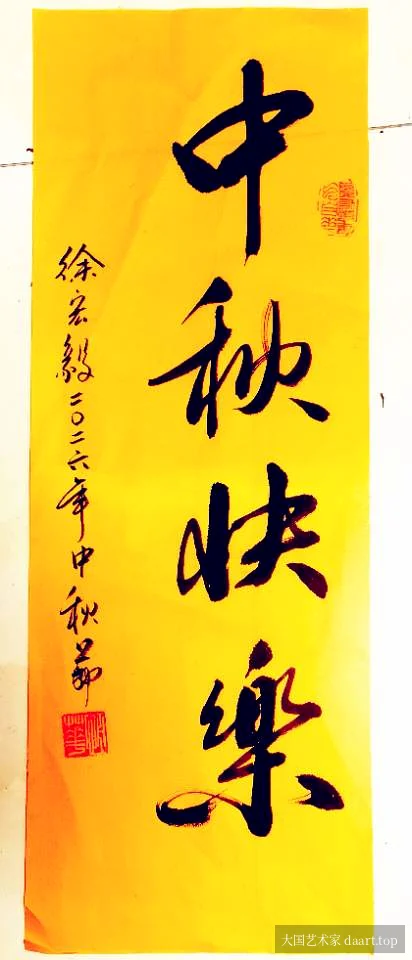 中秋快樂
徐宏毅二〇二六年中秋節
大国艺术家 daart.top